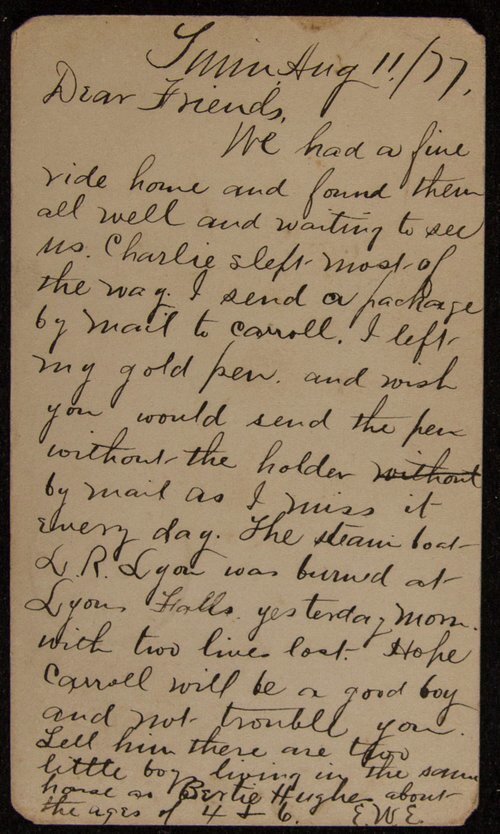 Turin, Aug 11/77,
Dear Friends,
We had a fine
ride home and found them
all well and waiting to see
us. Charlie slept most of
the way. I send a package
by mail to Carroll. I left
my gold pen. and wish
you would send the pen
without the holder without
by mail as I miss it
every day. The steam boat
L. R. Lyon was burned at
Lyons Falls. yesterday morn.
with two lives lost. Hope
Carroll will be a good boy
and not trouble you.
Tell him there are two
little boys living in the same
house as Bertie Hughes about
the ages of 4 & 6. E W E